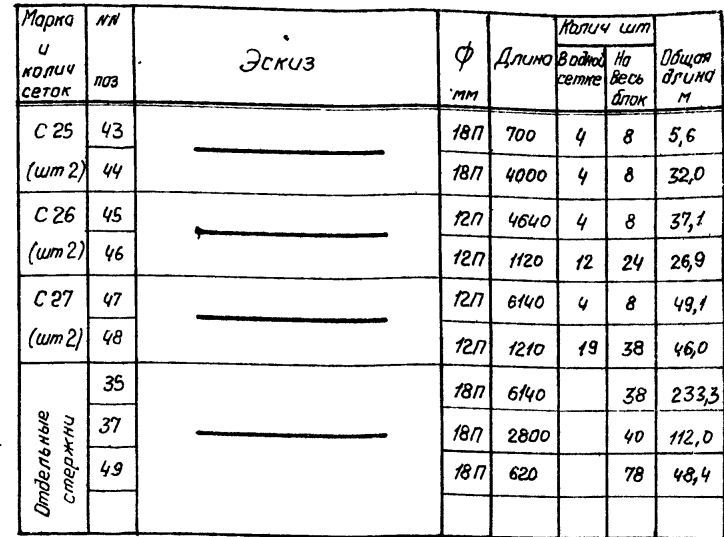 Марка и колич сеток
NN поз
Эскиз
ϕ мм
Длина
Колич шт
В одной сетке
На весь блок
Общая длина м
С 25 (шт 2)
43 18П 700 4 8 5,6
44 18П 4000 4 8 32,0
С 26 (шт 2)
45 12П 4640 4 8 37,1
46 12П 1120 12 24 26,9
С 27 (шт 2)
47 12П 6140 4 8 49,1
48 12П 1210 19 38 46,0
Отдельные стержни
35 18П 6140 38 233,3
37 18П 2800 40 112,0
49 18П 620 78 48,4